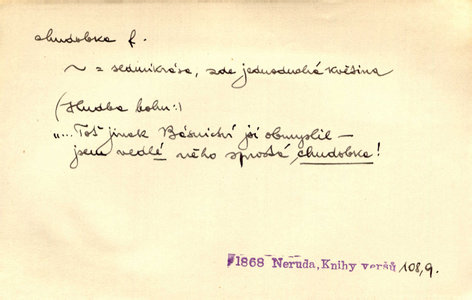 chudobka f.
~ = sedmikrása, zde jednoduchá květina
(Hudba bohu:)
„... Toť jinak Básnictví jsi obmyslil –
jsem vedlé něho sprostá chudobka!
1868 Neruda, Knihy veršů 108,9.